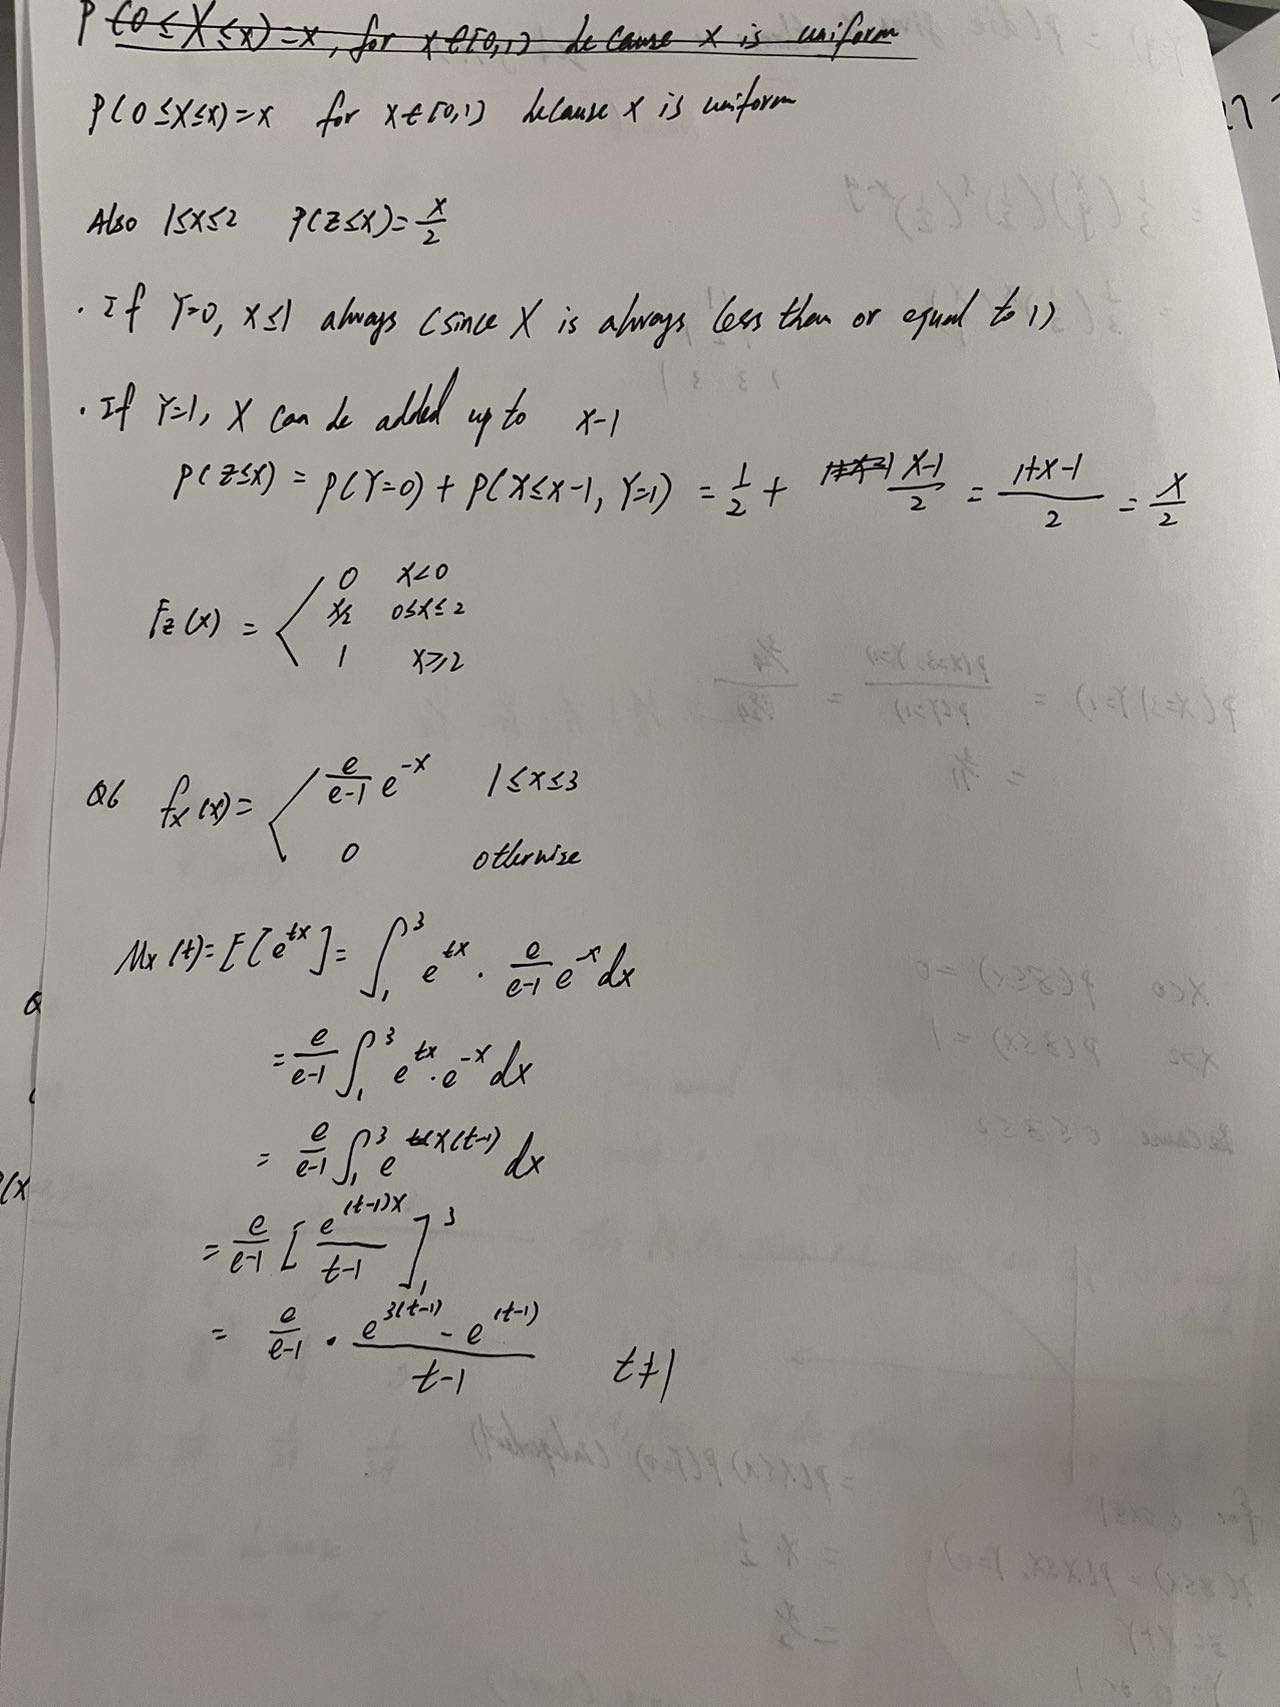 P(0≤X≤x)=x, for x∈[0,1] because x is uniform
P(0≤X≤x)=x for x∈[0,1] because x is uniform
Also 1≤x≤2 P(Z≤x)=x/2
· If Y=0, X≤1 always (since X is always less then or equal to 1)
· If Y=1, X can be added up to x-1
P(Z≤x) = P(Y=0) + P(X≤x-1, Y=1) = 1/2 + (x-1)/2 = (1+x-1)/2 = x/2
F_Z(x) = { 0 x<0
x/2 0≤x≤2
1 x≥2
Q6 f_X(x) = { e/(e-1) e^{-x} 1≤x≤3
0 otherwise
M_X(t) = E[e^{tx}] = ∫_1^3 e^{tx} · e/(e-1) e^{-x} dx
= e/(e-1) ∫_1^3 e^{tx} · e^{-x} dx
= e/(e-1) ∫_1^3 e^{x(t-1)} dx
= e/(e-1) [ e^{(t-1)x}/(t-1) ]_1^3
= e/(e-1) · (e^{3(t-1)} - e^{(t-1)})/(t-1) t≠1